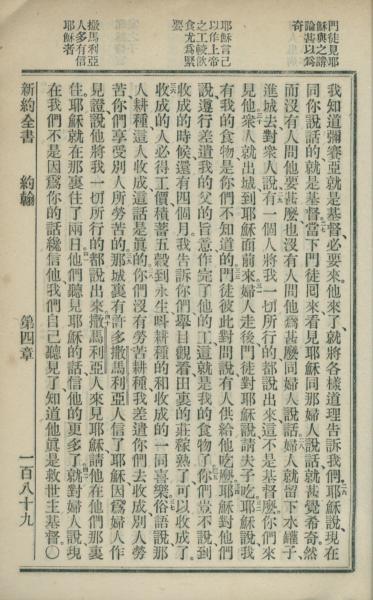 門徒見耶
穌與之談
論甚以爲
奇
耶穌言己
以作上帝
之工較飲
食尤爲緊
要
撒馬利亞
人多有信
耶穌者
我知道彌賽亞就是基督必要來他來了就將各樣道理告訴我們耶穌說現在
同你說話的就是基督當下門徒囘來看見耶穌同那婦人說話就甚覺希奇然
而沒有人問他要甚麽也沒有人問他爲甚麽同婦人說話婦人就留下水罐子
進城去對衆人說有一個人將我一切所行的都說出來這不是基督麽你們來
見他衆人就出城到耶穌面前來婦人走後門徒對耶穌說請夫子吃耶穌說我
有我的食物是你們不知道的門徒彼此對問說有人供給他吃麽耶穌對他們
說遵行差遣我的父的旨意作完了他的工這就是我的食物了你們豈不說到
收成的時候還有四個月我告訴你們舉目觀看田裏的莊稼熟了可以收成了
收成的人必得工價積蓄五穀到永生呌耕種的和收成的一同喜樂俗語說那
人耕種這人收成這話是眞的你們沒有勞苦耕種我差遣你們去收成別人勞
苦你們享受別人所勞苦的那城裏有許多撒馬利亞人信了耶穌因爲婦人作
見證說他將我一切所行的都說出來撒馬利亞人來見耶穌請他在他們那裏
住耶穌就在那裏住了兩日他們聽見耶穌的話信他的更多了就對婦人說現
在我們不是因爲你的話纔信他我們自己聽見了知道他眞是救世主基督〇
新約全書 約翰 第四章 一百八十九